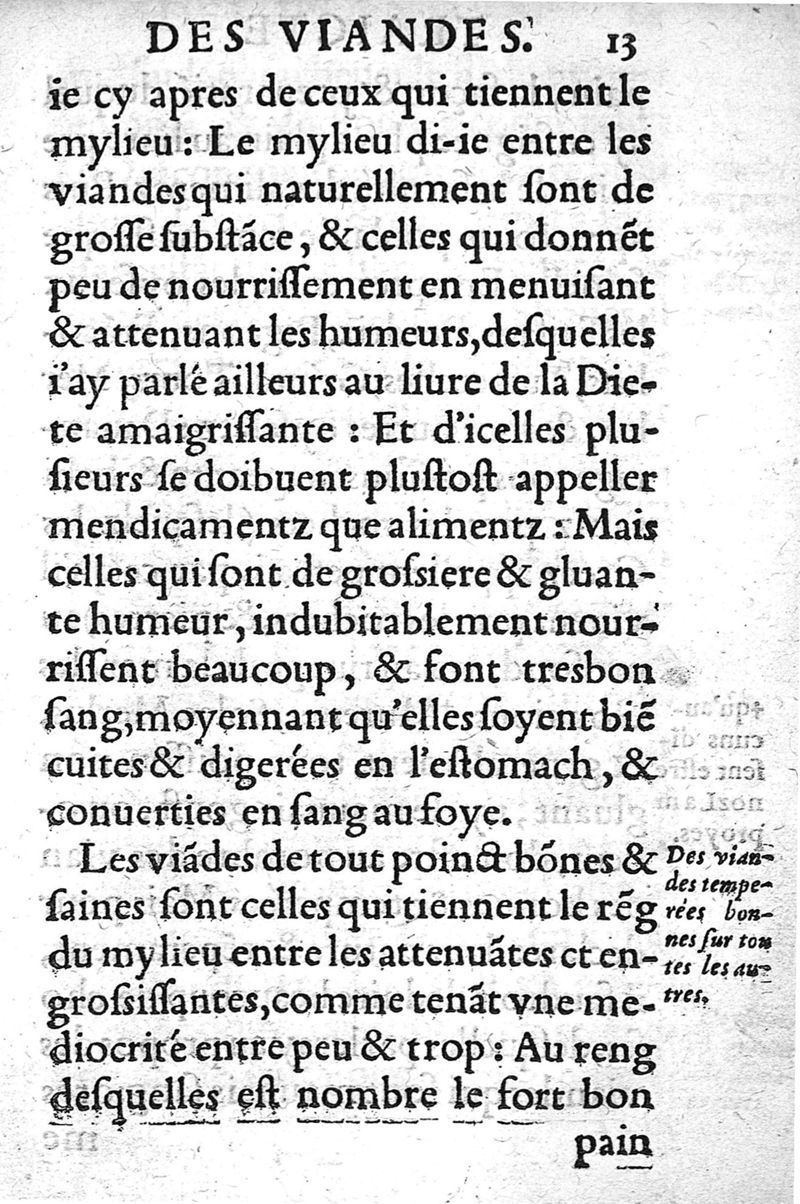 DES VIANDES. 13
ie cy apres de ceux qui tiennent le
mylieu : Le mylieu di-ie entre les
viandes qui naturellement ſont de
groſſe ſubſtãce, & celles qui donnẽt
peu de nourriſſement en menuiſant
& attenuant les humeurs, deſquelles
i'ay parlé ailleurs au liure de la Die-
te amaigriſſante : Et d'icelles plu-
ſieurs ſe doibuent pluſtoſt appeller
mendicamentz que alimentz : Mais
celles qui ſont de groſsiere & gluan-
te humeur, indubitablement nour-
riſſent beaucoup, & font tresbon
ſang, moyennant qu'elles ſoyent biẽ
cuites & digerées en l'eſtomach, &
conuerties en ſang au foye.
Les viãdes de tout poinct bõnes &
ſaines ſont celles qui tiennent le rẽg
du mylieu entre les attenuãtes et en-
groſsiſſantes, comme tenãt vne me-
diocrité entre peu & trop : Au reng
deſquelles eſt nombre le fort bon
pain
Des vian-
des tempe-
rées bon-
nes ſur tou
tes les au-
tres.